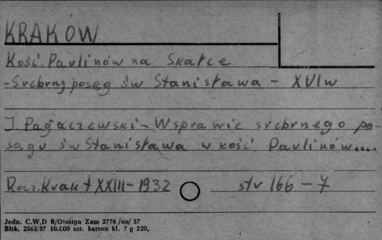 KRAKÓW
Kość. Paulinów na Skałce
-Srebrny posąg św Stanisława - XVI w
J. Pagaczewski - W sprawie srebrnego po-
sągu św Stanisława w kość. Paulinów....
Rocz. Krak t XXIII - 1932 str 166 - 7
Jedn. C.W.D B/Olsztyn Zam 2776 /on/ 57
Bltk. 2563/57 10.000 szt. karton kl. 7 g 220.